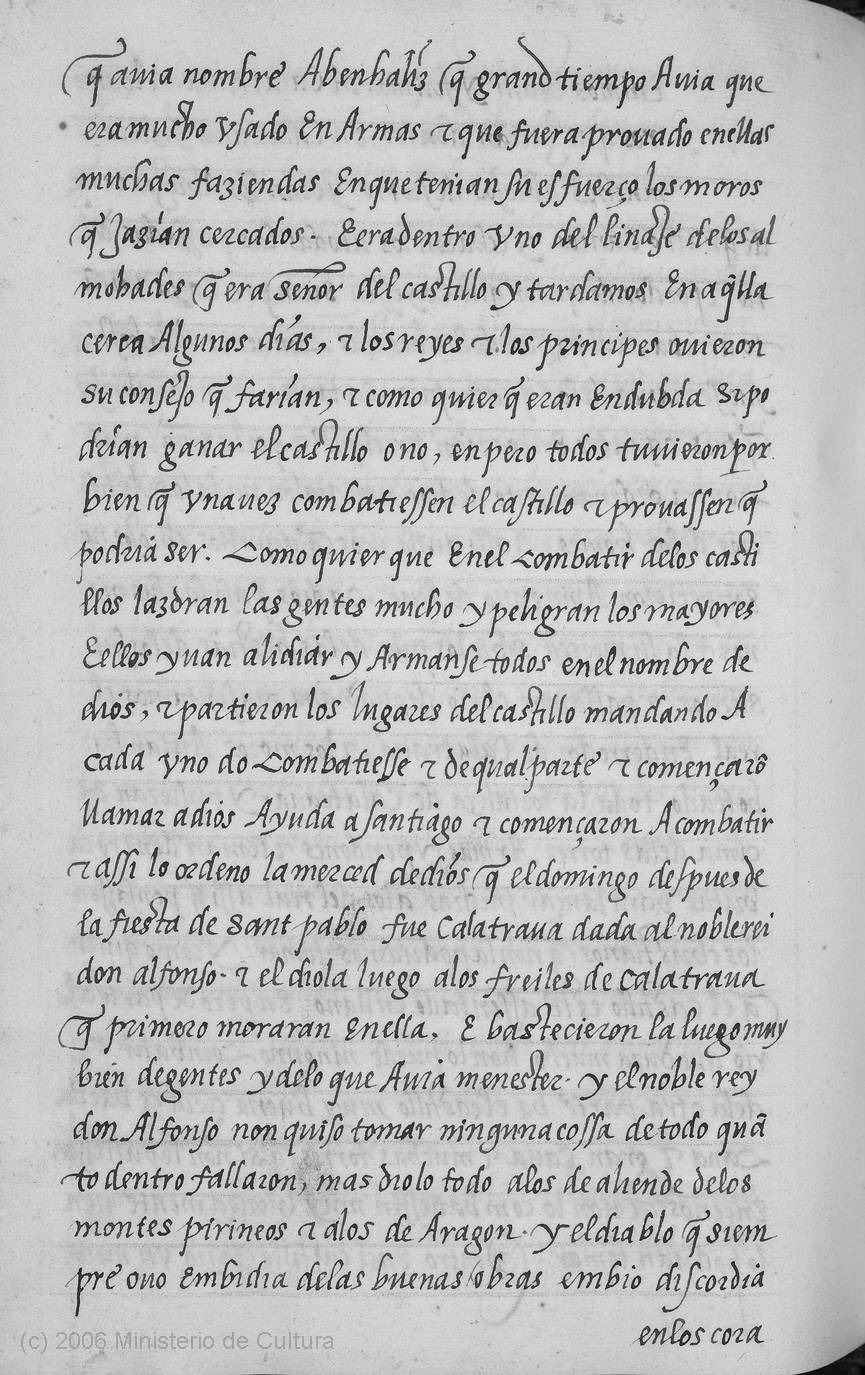 q̃ auia nombre Abenhaliz q̃ grand tiempo Auia que
era mucho vsado En Armas & que fuera prouado enellas
muchas faziendas Enque tenian su esfuerço los moros
q̃ Jazían cercados. E era dentro vno del linaje delos al
mohades q̃ era señor del castillo y tardamos En aq̃lla
cerca Algunos días, & los reyes & los principes ouieron
su consejo q̃ farían, & como quier q̃ eran Endubda Si po
drían ganar el castillo o no, enpero todos tuuieron por
bien q̃ vna uez combatiessen el castillo & prouassen q̃
podria ser. Como quier que Enel Combatir delos casti
llos lazdran las gentes mucho y peligran los mayores
E ellos yuan alidiár y Armanse todos enel nombre de
dios, & partieron los lugares del castillo mandando A
cada vno do Combatiesse & de qual parte & començarõ
llamar a dios Ayuda a santiàgo & començaron A combatir
& assi lo ordeno la merced de diós q̃ el domingo despues de
la fiesta de Sant pablo fue Calatraua dada al noble rei
don alfonso. & el diola luego alos freiles de Calatraua
q̃ primero moraran Enella. E bastecieron la luego muy
bien degentes y delo que Auia menester. y el noble rey
don Alfonso non quiso tomar ninguna cossa de todo quã
to dentro fallaron, mas diolo todo alos de aliende delos
montes pirineos & alos de Aragon. y el diablo q̃ siem
pre ouo Embidia delas buenas obras embio discordia
enlos cora
(c) 2006 Ministerio de Cultura